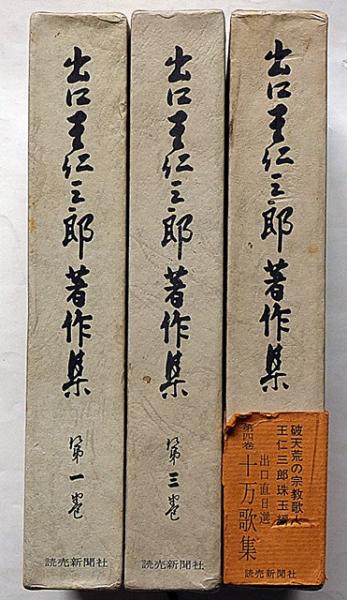 出口王仁三郎著作集
第一巻
読売新聞社
出口王仁三郎著作集
第三巻
読売新聞社
出口王仁三郎著作集
破天荒の宗教歌人
王仁三郎珠玉編
出口直日選
第四巻 十万歌集
読売新聞社